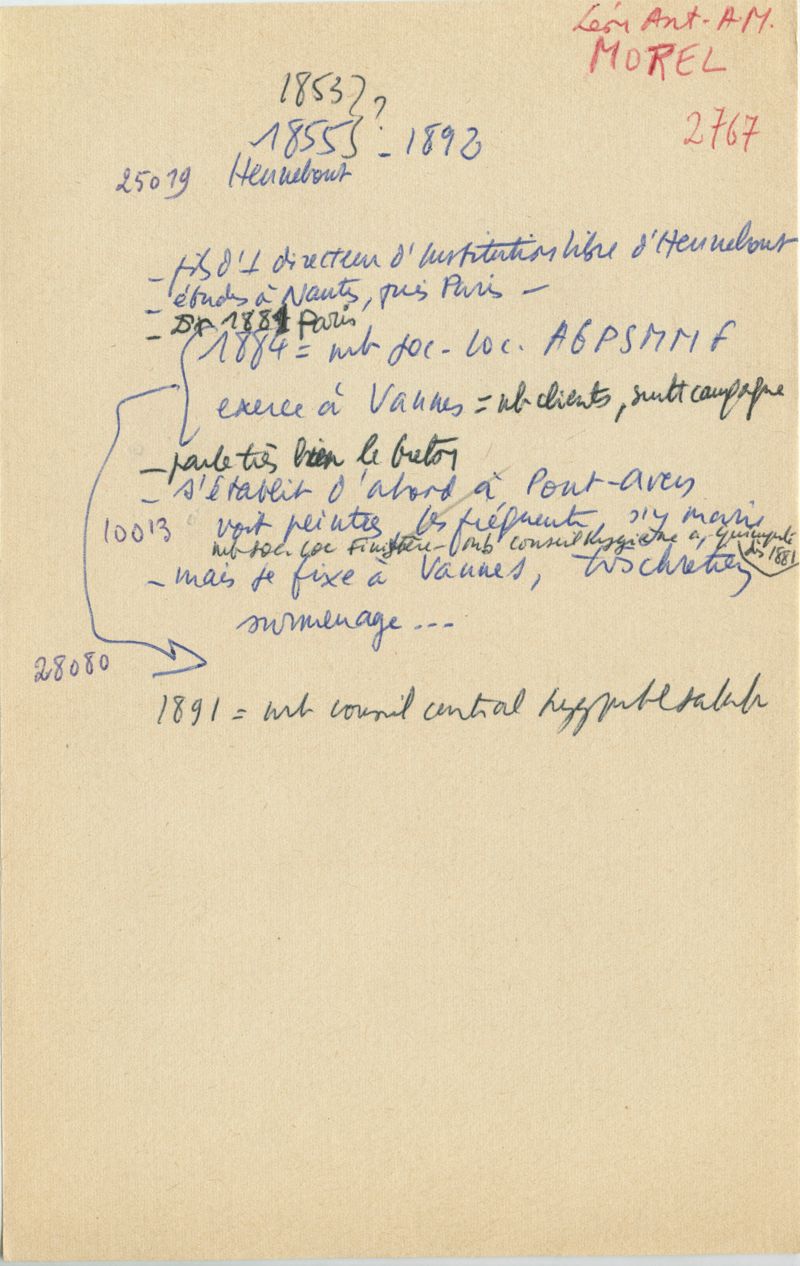 Léon Ant. A.M.
MOREL
2767
1853}?
1855} - 1892
25019 Hennebont
- fils d'1 directeur d'Institution libre d'Hennebont
- études à Nantes, puis Paris -
- Dr 1881 Paris
1884 = mb soc. loc. AGPSMMF
exerce à Vannes = nb clients, surtt campagne
- parle très bien le breton
- s'établit d'abord à Pont-Aven
10013 voit peintres, les fréquente, s'y marie
mb soc loc Finistère - mb conseil hygiène a, Quimperlé
dès 1881
- mais se fixe à Vannes, très chrétien
surmenage...
28080
1891 = mb conseil central hyg publ salub